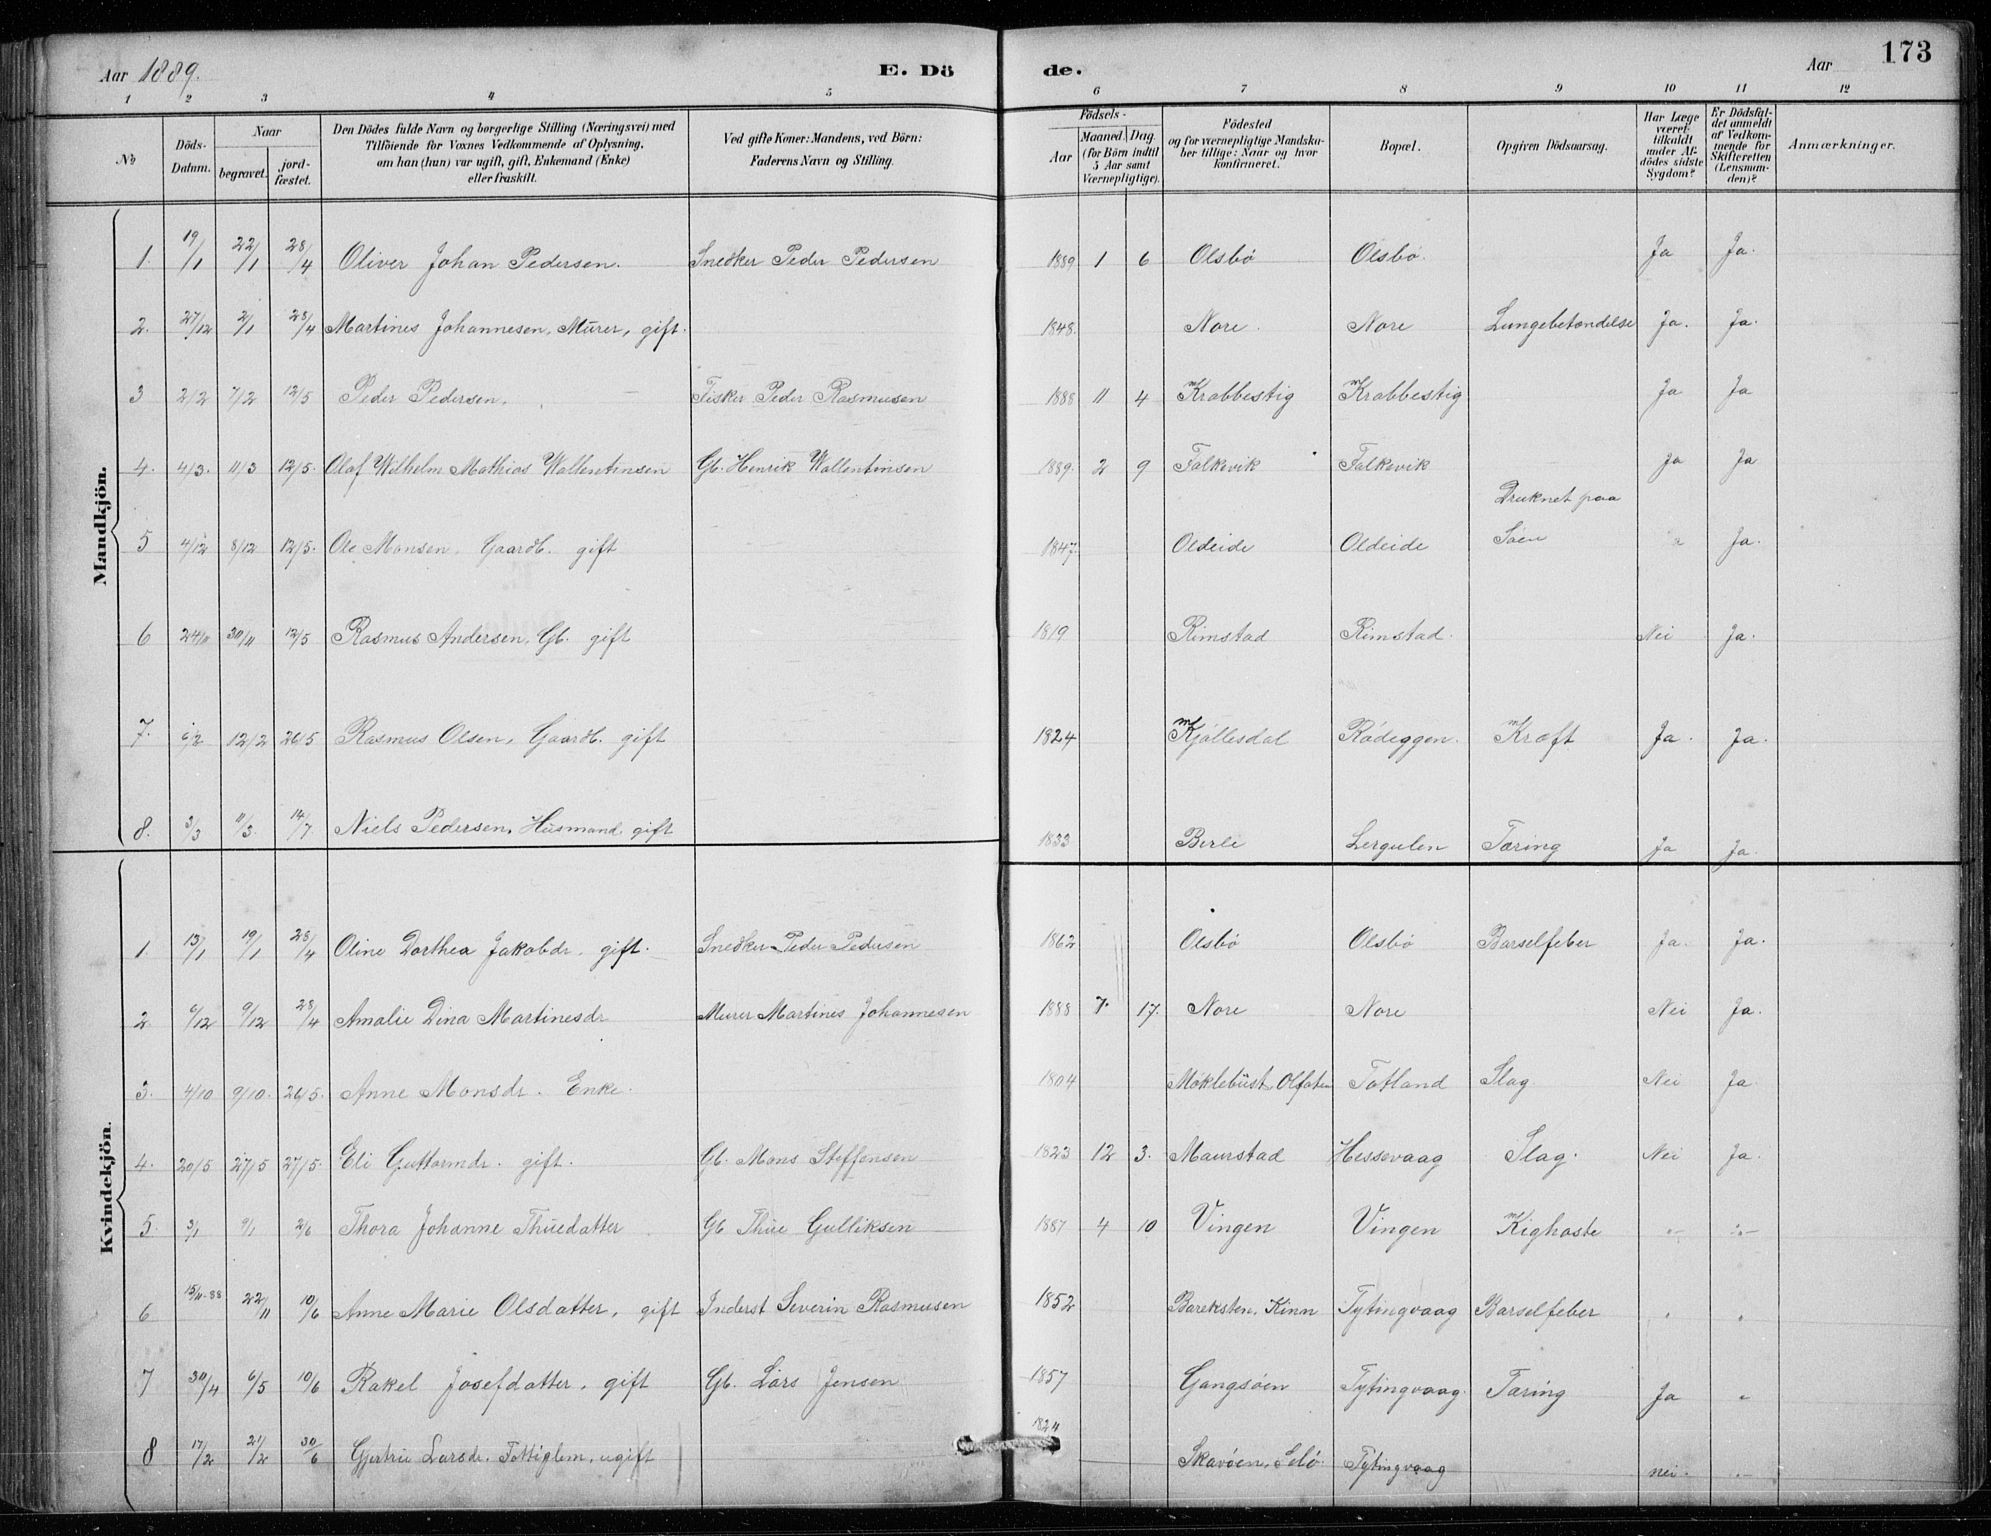 Aar 1889. E. Dö de. Aar 173
1 2 3 4 5 6 7 8 9 10 11 12
No
Döds-Datum.
Naar
begravet.
jordfæstet.
Den Dödes fulde Navn og borgerlige Stilling (Næringsvei) med
Tilföiende for Voxnes Vedkommende af Oplysning,
om han (hun) var ugift, gift, Enkemand (Enke)
eller fraskilt.
Ved gifte Koner: Mandens, ved Börn:
Faderens Navn og Stilling.
Födsels-
Aar
Maaned. Dag.
(for Börn indtil
5 Aar samt
Værnepligtige).
Födested
og for værnepligtige Mandskaber tillige: Naar og hvor
konfirmeret.
Bopæl.
Opgiven Dödsaarsag.
Har Læge
været
tilkaldt
under Afdödes sidste
Sygdom?
Er Dödsfaldet anmeldt
af Vedkommende for
Skifteretten
(Lensmanden)?
Anmærkninger.
Mandkjön.
1. 19/1 22/1 28/4 Oliver Johan Pedersen. Snedker Peder Pedersen 1889 1 6 Olsbø Olsbø. Ja Ja.
2. 27/12 2/1 28/4 Martines Johannesen, Murer, gift. 1848. Nore. Nore Lungebetændelse Ja. Ja.
3 2/2 7/2 12/5 Peder Pedersen. Fisker Peder Rasmusen 1888 11 4 Krabbestig Krabbestig Ja Ja
4. 4/3. 11/3 12/5. Olaf Wilhelm Mathias Wallentinsen Gb. Henrik Wallentinsen 1889. 2 9 Falkevik Falkevik Ja Ja
5 4/12 8/12 12/5. Ole Monsen. Gaardb. gift 1847. Oldeide Oldeide Druknet paa
Søen Ja.
6 24/11 30/11 12/5 Rasmus Andersen, Gb. gift 1819 Rimstad Rimstad. Nei Ja.
7. 6/2 12/2 26/5 Rasmus Olsen, Gaardb. gift 1824 Kjøllesdal Rødeggen. Kræft Ja. Ja.
8. 3/3 11/3. 14/7 Niels Pedersen, Husmand, gift 1833 Berle Lergulen Tæring Ja Ja.
Kvindekjön.
1. 13/1 19/1 28/4 Oline Dorthea Jakobdr. gift. Snedker Peder Pedersen 1862 Olsbø Olsbø Barselfeber Ja. Ja.
2 6/12 9/12 28/4 Amalie Dina Martinesdr Murer Martines Johannesen 1888 7. 17. Nore Nore Nei Ja.
3. 4/10 9/10. 26/5. Anne Monsdr. Enke. 1804 Møklebust, Olfoten Totland Slag Nei Ja
4. 20/5 27/5 27/5. Eli Guttormdr. gift. Gb. Mons Steffensen 1823 12 3. Maurstad Hessevaag Slag. Nei Ja.
5. 3/1 9/1 2/6 Thora Johanne Thuedatter Gb Thue Gulliksen 1887 4 10 Vingen Vingen Kighoste -"- -"-
6 15/11-88 22/11 10/6 Anne Marie Olsdatter, gift Inderst Severin Rasmusen 1852 Bareksten, Kinn Tytingvaag Barselfeber " "
7 30/4 6/5 10/6 Rakel Josefdatter, gift Gb. Lars Jensen 1857 Gangsøen Tytingvaag. Tæring Ja "
8 17/2 21/2 30/6 Gjertrue Larsdr. Fattiglem, ugift 1824 Skavøen, Selø. Tytingvaag nei. -"-